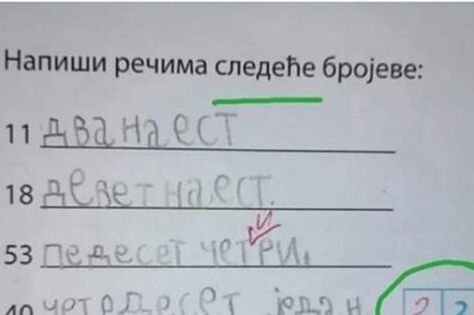 Напиши речима следеће бројеве:
11 дванаест
18 деветнаест.
53 педесет четри.
и
40 четрдесет један
2 2